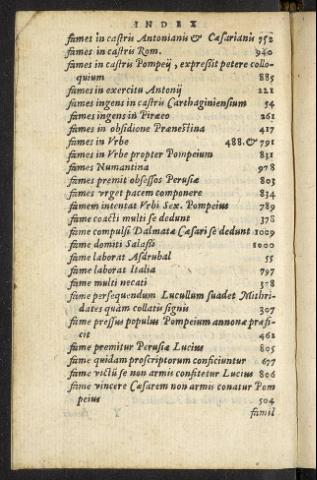 INDEX
fames in castris Antonianis & Cæsarianis 752
fames in castris Rom. 940
fames in castris Pompeij, expressit petere collo-
quium 885
fames in exercitu Antonij 221
fames ingens in castris Carthaginiensium 54
fames ingens in Piræo 261
fames in obsidione Prænestina 417
fames in Vrbe 488.& 791
fames in Vrbe propter Pompeium 831
fames Numantina 978
fames premit obsessos Perusiæ 803
fames vrget pacem componere 834
famem intentat Vrbi Sex. Pompeius 789
fame coacti multi se dedunt 378
fame compulsi Dalmatæ Cæsari se dedunt 1029
fame domiti Salassi 1000
fame laborat Asdrubal 55
fame laborat Italia 797
fame multi necati 378
fame persequendum Lucullum suadet Mithri-
dates quàm collatis signis 307
fame pressus populus Pompeium annonæ præfi-
cit 461
fame premitur Perusiæ Lucius 805
fame quidam proscriptorum conficiuntur 677
fame victũ se non armis confitetur Lucius 806
fame vincere Cæsarem non armis conatur Pom
peius 504
famil